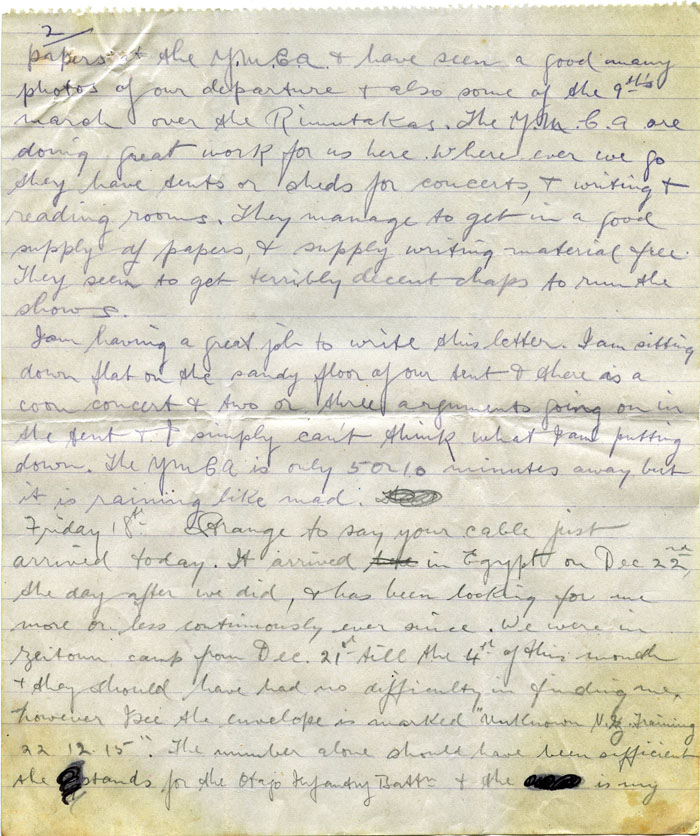 2
papers & the Y.M.C.A. & have seen a good many
photos of our departure & also some of the 9th's
march over the Rimutakas. The Y.M.C.A are
doing great work for us here. Where ever we go
they have tents or sheds for concerts, & writing &
reading rooms. They manage to get in a good
supply of papers, & supply writing material free.
They seem to get terribly decent chaps to run the
shows.
I am having a great job to write this letter. I am sitting
down flat on the sandy floor of our tent & there is a
coon concert & two or three arguments going on in
the tent & I simply can't think what I am putting
down. The YMCA is only 5 or 10 minutes away but
it is raining like mad.
Friday 18th Strange to say your cable just
arrived today. It arrived in Egypt on Dec 22nd,
the day after we did, & has been looking for me
more or less continuously ever since. We were in
Zeitoun camp from Dec. 21st till the 4th of this month
& they should have had no difficulty in finding me,
however I see the envelope is marked "Unknown N.Z. Training
22.12.15". The number alone should have been sufficient
the stands for the Otago Infantry Battn & the is my